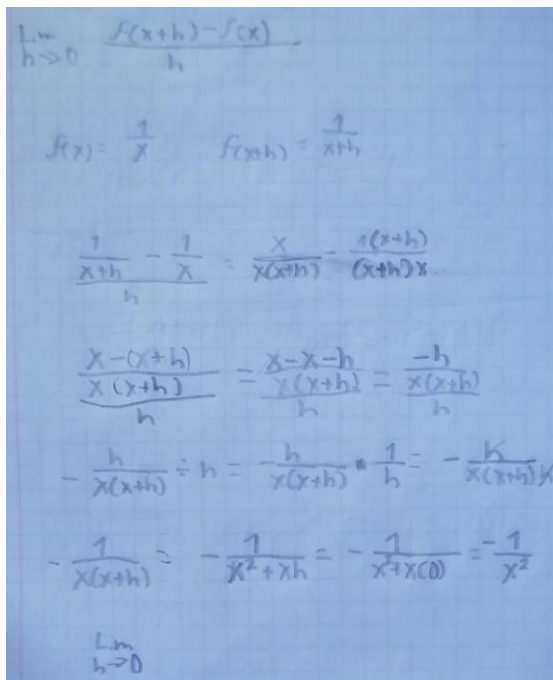 Lim h→0 (f(x+h)-f(x))/h
f(x) = 1/x    f(x+h) = 1/(x+h)
(1/(x+h) - 1/x)/h = x/(x(x+h)) - 1(x+h)/((x+h)x)
((x-(x+h))/(x(x+h)))/h = ((x-x-h)/(x(x+h)))/h = (-h/(x(x+h)))/h
- h/(x(x+h)) ÷ h = -h/(x(x+h)) * 1/h = - h/(x(x+h)h)
- 1/(x(x+h)) = - 1/(x²+xh) = - 1/(x²+x(0)) = - 1/x²
Lim h→0